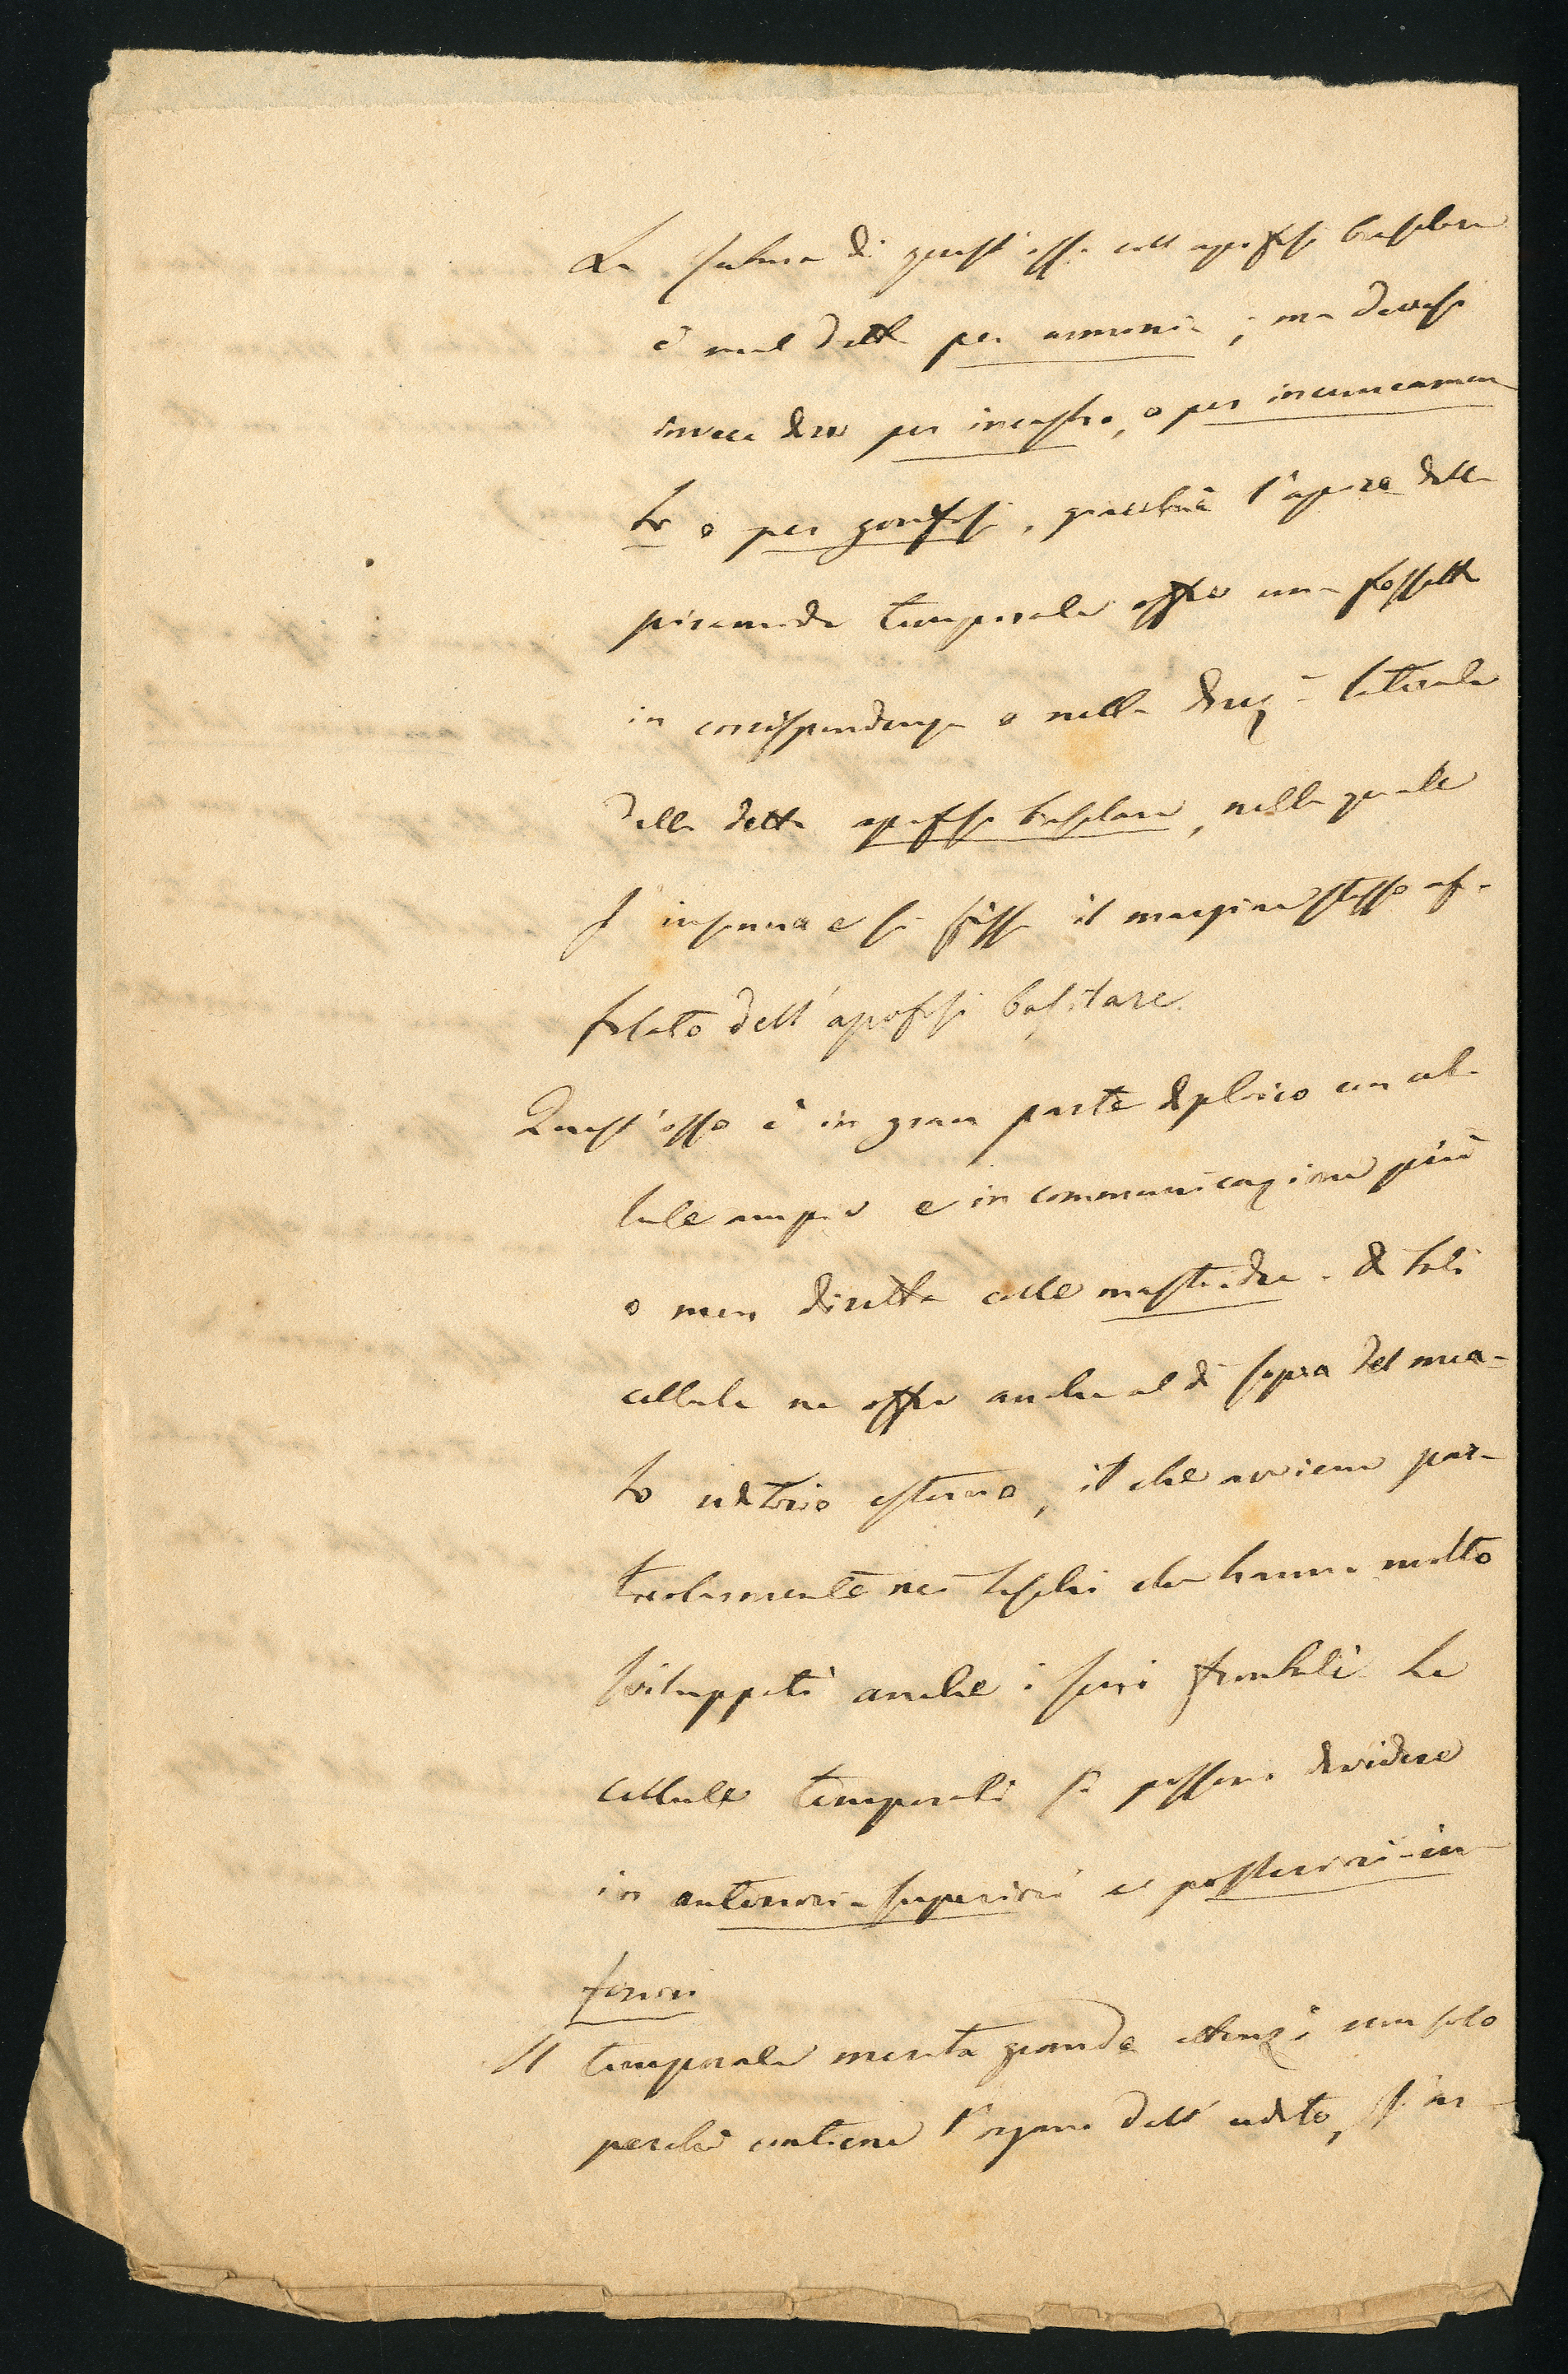 La sutura di quest'osso coll'apofisi basilare
è mal detta per armonia; ma devesi
invece dire per incastro, o per incuneamen
to o per gonfosi, giacchè l'apice della
piramide temporale offre una fossetta
in corrispondenza o nella direz.e laterale
della detta apofisi basilare, nella quale
s'insinua e si fissa il margine stesso af-
filato dell'apofisi basilare.
Quest'osso è in gran parte diploico con cel-
lule ampie e in communicazione più
o men diretta colle mastoidee. Di tali
cellule ne offre anche al di sopra del mea-
to uditorio esterno, il che avviene par-
ticolarmente nei teschi che hanno molto
sviluppati anche i seni frontali. Le
cellule temporali si possono dividere
in anteriori-superiori e posteriori-in-
feriori
Il temporale merita grande attenz.e non solo
perchè contiene l'organo dell'udito,